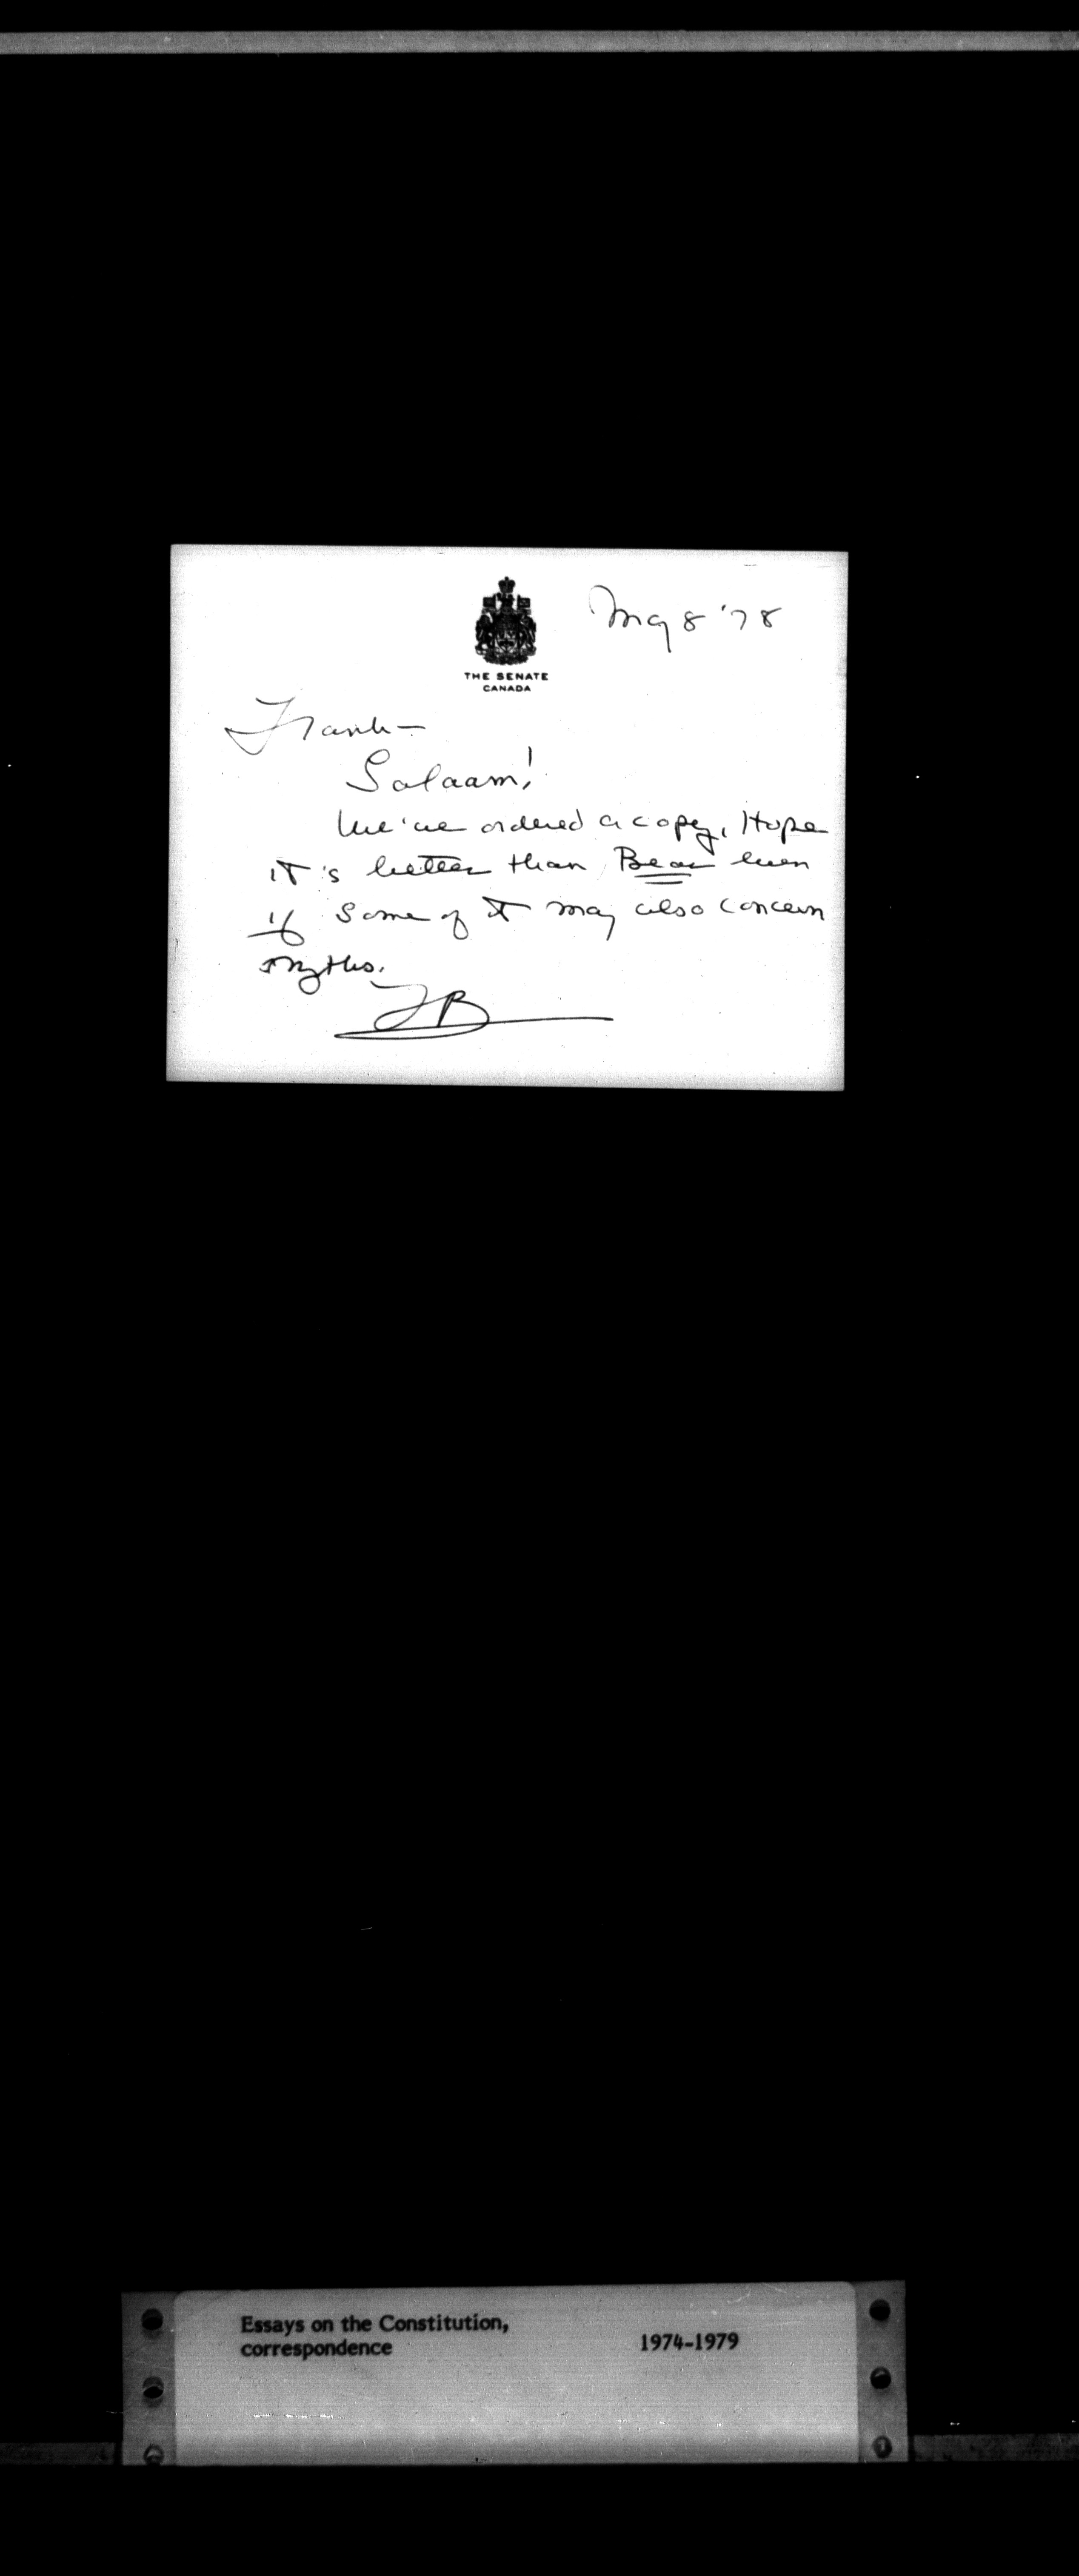 May 8 '78
THE SENATE
CANADA
Frank—
Salaam!
We've ordered a copy. Hope
it's better than Bear even
if some of it may also concern
myths.
FB
Essays on the Constitution,
correspondence
1974-1979